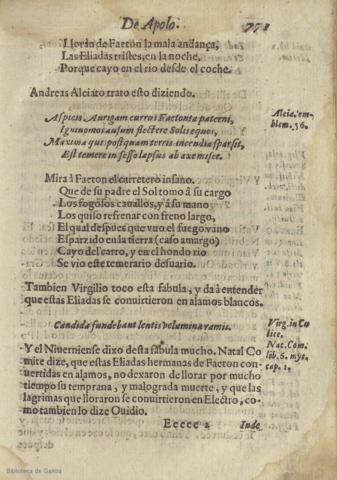 De Apolo. 771
Lloran de Faeton la mala andança,
Las Eliadas tristes, en la noche.
Porque cayo en el rio desde el coche.
Andreas Alciato trato esto diziendo.
Aspicis Aurigam currus Faetonta paterni,
Igniuomos ausum flectere Solis equos,
Maxima qui postquam terris incendia sparsit,
Est temere insesso lapsus ab axe miser.
Alcia. em-
blem. 56.
Mira â Faeton el carretero insano.
Que de su padre el Sol tomo â su cargo
Los fogosos cauallos, y â su mano
Los quiso refrenar con freno largo,
El qual despues que vuo el fuego vano
Esparzido en la tierra (caso amargo)
Cayo del carro, y en el hondo rio
Se vio este temerario desuario.
Tambien Virgilio toco esta fabula, y da â entender
que estas Eliadas se conuirtieron en alamos blancos.
Candida fundebant lentis velamina ramis.
Virg. in Cu
lice.
Nat. Com.
lib. 6. myt.
cap. 1.
Y el Niuerniense dixo desta fabula mucho. Natal Co
mite dize, que estas Eliadas hermanas de Faeton con-
uertidas en alamos, no dexaron de llorar por mucho
tiempo su temprana, y malograda muerte, y que las
lagrimas que lloraron se conuirtieron en Electro, co-
mo tambien lo dize Ouidio.
Eeeee 2 Inde
Biblioteca de Galicia